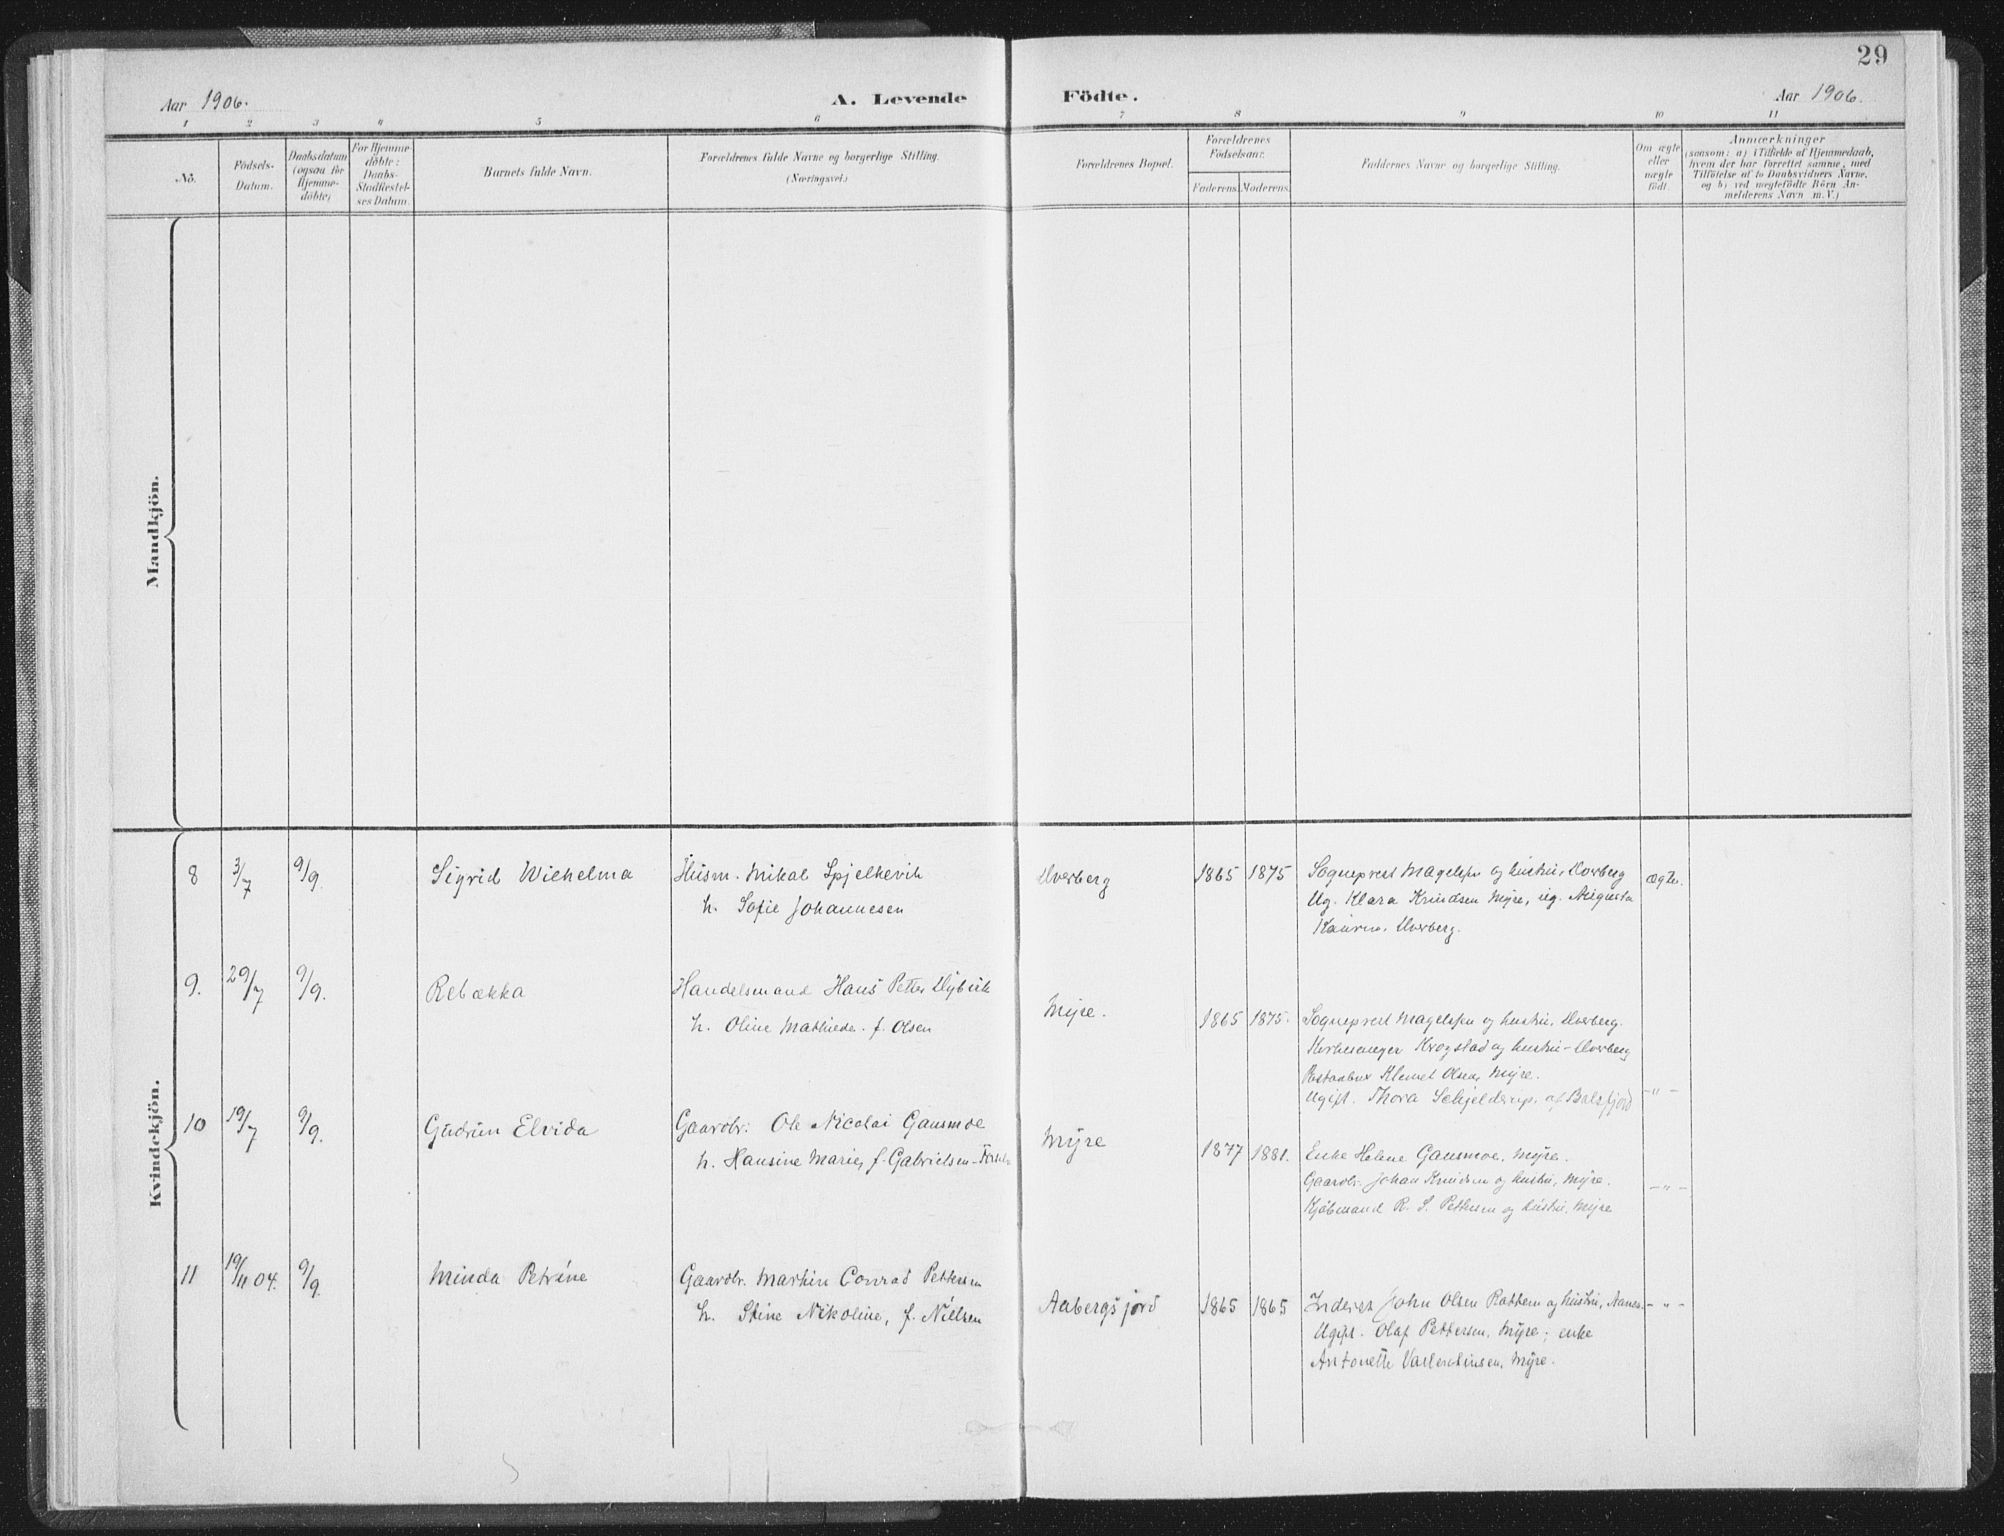 29
Aar 1906.
A. Levende Födte.
Aar 1906.
1 2 3 4 5 6 7 8 9 10 11
No.
Födsels-
Datum.
Daabsdatum
(ogsaa for
Hjemme-
döbte)
For Hjemme-
döbte:
Daabs-
Stadfæstel-
ses Datum.
Barnets fulde Navn.
Forældrenes fulde Navne og borgerlige Stilling.
(Næringsvei.)
Forældrenes Bopæl.
Forældrenes
Födselsaar.
Faderens. Moderens.
Faddernes Navne og borgerlige Stilling.
Om ægte
eller
uægte
födt.
Anmærkninger
(saasom: a) i Tilfælde af Hjemmedaab,
hvem der har forrettet samme, med
Tilföielse af to Daabsvidners Navne,
og b) ved uegtefödte Börn An-
melderens Navn m.V.)
Mandkjön.
Kvindekjön.
8 3/7 9/9. Sigrid Wilhelma Husm. Mikal Spjelkevik Dverberg 1865 1875 Sogneprest Magelssen og hustru, Dverberg ægte.
h. Sofie Johannesen Ug. Klara Knudsen Myre, ug. Augusta
Kaurin, Dverberg.
9. 29/7 9/9. Rebækka Handelsmand Hans Petter Dybvik Myre. 1865 1875. Sogneprest Magelssen og hustru, Dverberg.
h. Oline Mathilde f. Olsen Kirkesanger Krogstad og hustru - Dverberg
Klemet Olsen, Myre.
Ugift. Thora Schjelderup, af Balsfjord -"-
10 19/7 9/9. Gudrun Elvida Gaardbr. Ole Nicolai Gausmoe Myre 1877 1881. Enke Helene Gausmoe, Myre.
h. Hansine Marie, f. Gabrielsen Gaardbr. Johan Knudsen og hustru, Myre. -"-
Kjöbmand R. S. Pettersen og hustru, Myre
11 19/11 04. 9/9. Minda Petrine Gaardbr. Martin Conrad Pettersen Aabergsjord 1865 1865 Inderst John Olsen og hustru, Aanes. -"-
h. Stine Nikoline, f. Nielsen Ugift. Olaf Pettersen, Myre; enke
Antonette Valentinsen, Myre.